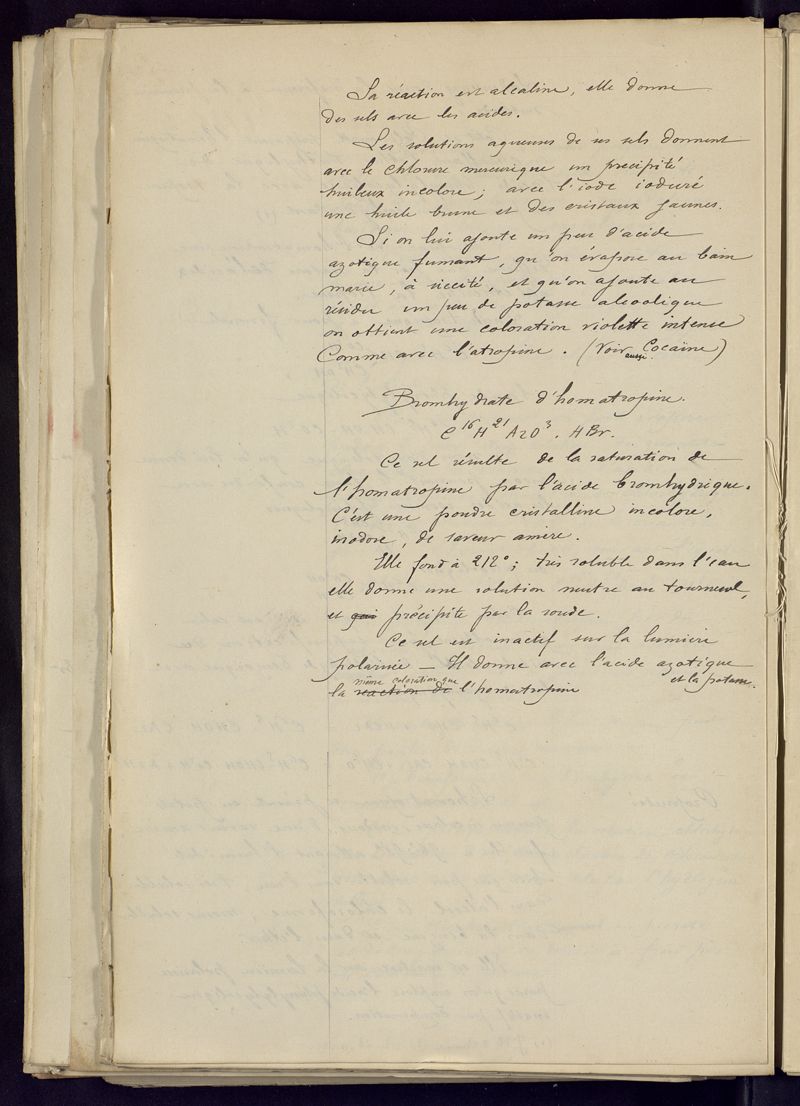 Sa réaction est alcaline, elle donne
des sels avec les acides.
Les solutions aqueuses de ses sels donnent
avec le chlorure mercurique un précipité
huileux incolore; avec l'iode ioduré
une huile brune et des cristaux jaunes.
Si on lui ajoute un peu d'acide
azotique fumant, qu'on évapore au bain
marie, à siccité, et qu'on ajoute au
résidu un peu de potasse alcoolique
on obtient une coloration violette intense
Comme avec l'atropine. (Voir aussi Cocaïne)
Bromhydrate d'homatropine.
C¹⁶H²¹AzO³. HBr.
Ce sel résulte de la saturation de
l'homatropine par l'acide bromhydrique.
C'est une poudre cristalline incolore,
inodore, de saveur amère.
Elle fond à 212°; très soluble dans l'eau
elle donne une solution neutre au tournesol,
et qui précipite par la soude.
Ce sel est inactif sur la lumière
polarisée — Il donne avec l'acide azotique et la potasse
la même coloration que réaction de l'homatropine
Propriétés